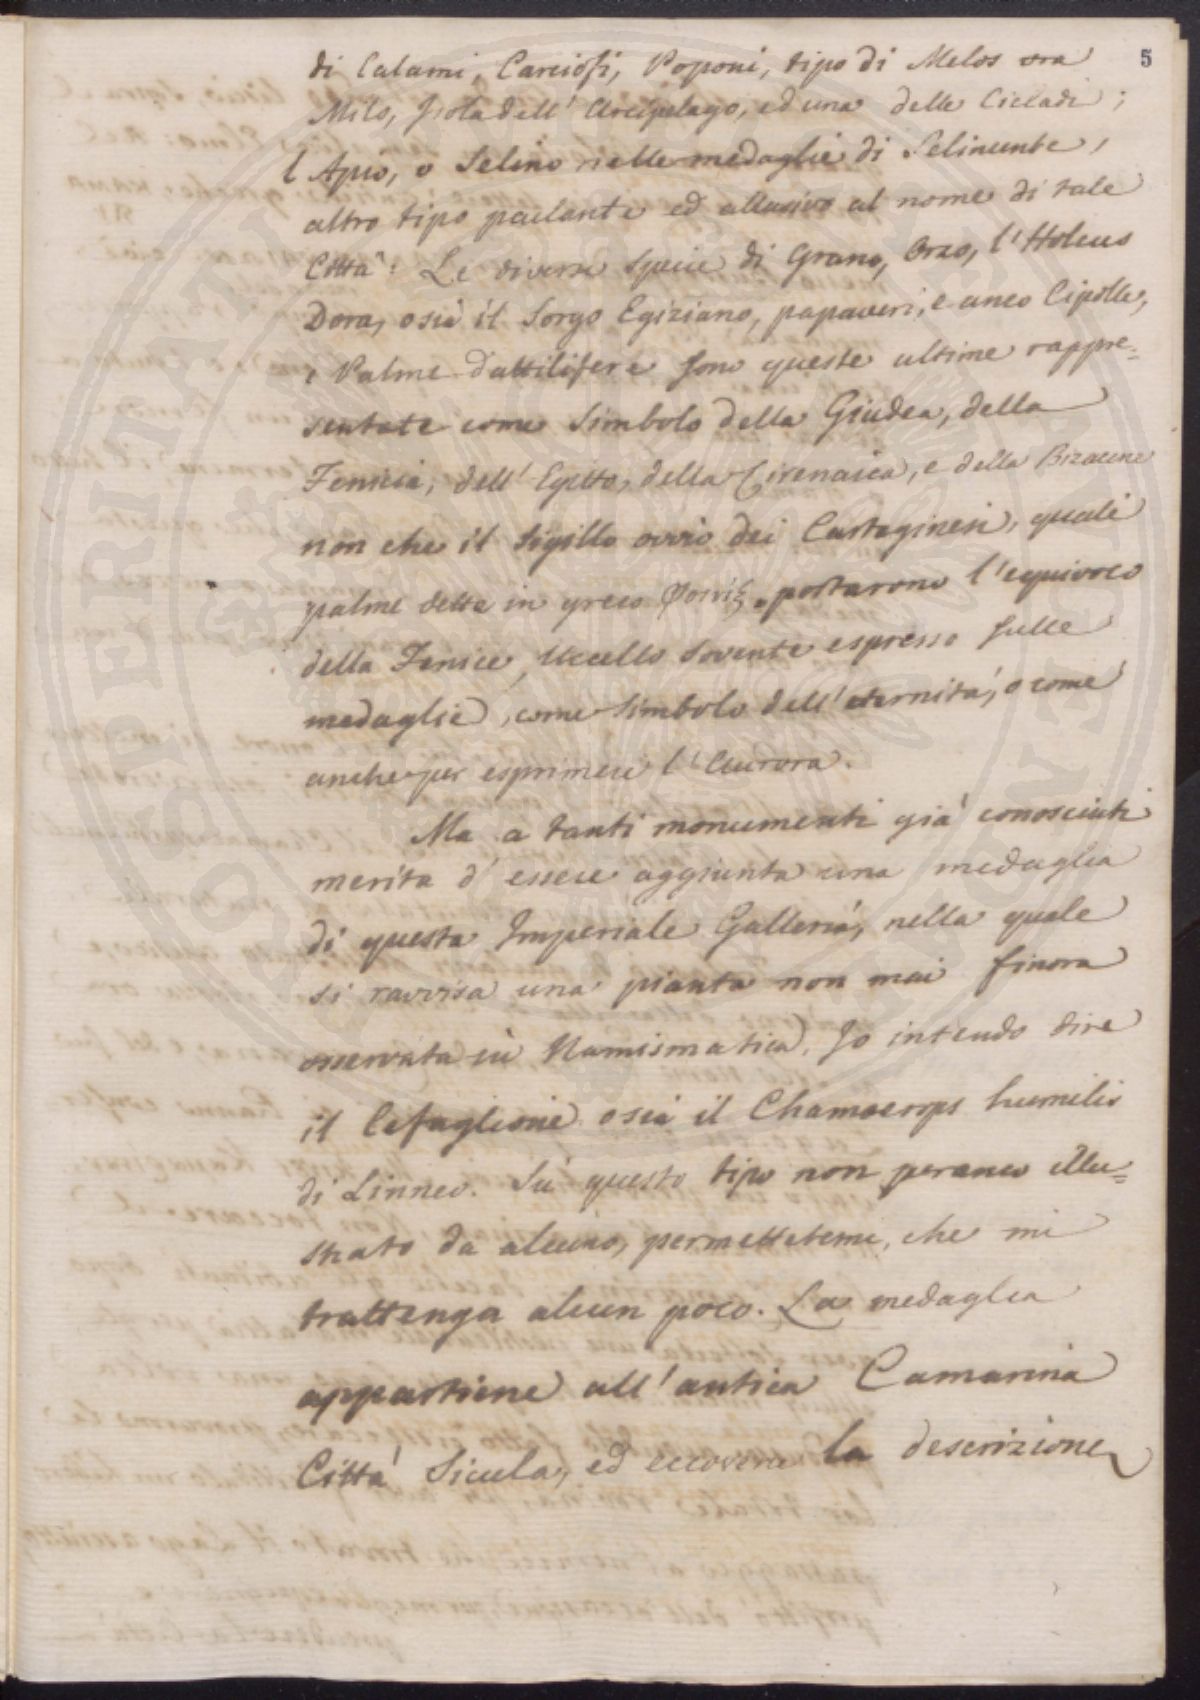 5
di Calami, Carciofi, Poponi, tipo di Melos ora
Milo, Isola dell' Arcipelago, ed una delle Cicladi;
l'Apio, o Selino nelle medaglie di Selinunte,
altro tipo parlante ed allusivo al nome di tale
Città: Le diverse specie di Grano, Orzo, l'Holcus
Dora, osia il Sorgo Egiziano, papaveri, e anco Cipolle,
e Palme dattilifere sono queste ultime rappre=
sentate come Simbolo della Giudea, della
Fenicia, dell' Egitto, della Cirenaica, e della Bizacene
non che il Sigillo ovvio dei Cartaginesi, quali
palme dette in greco Φοινιξ portarono l'equivoco
della Fenice, Uccello sovente espresso sulle
medaglie, come Simbolo dell' eternità, o come
anche per esprimere l'Aurora.
Ma a tanti monumenti già conosciuti
merita d'essere aggiunta una medaglia
di questa Imperiale Galleria, nella quale
si ravvisa una pianta non mai finora
osservata in Numismatica. Io intendo dire
il Cefaglione osia il Chamaerops humilis
di Linneo. Su questo tipo non peranco illu=
strato da alcuno, permettetemi, che mi
trattenga alcun poco. La medaglia
appartiene all' antica Camarina
Città Sicula, ed eccovene la descrizione
SOSPERITATI